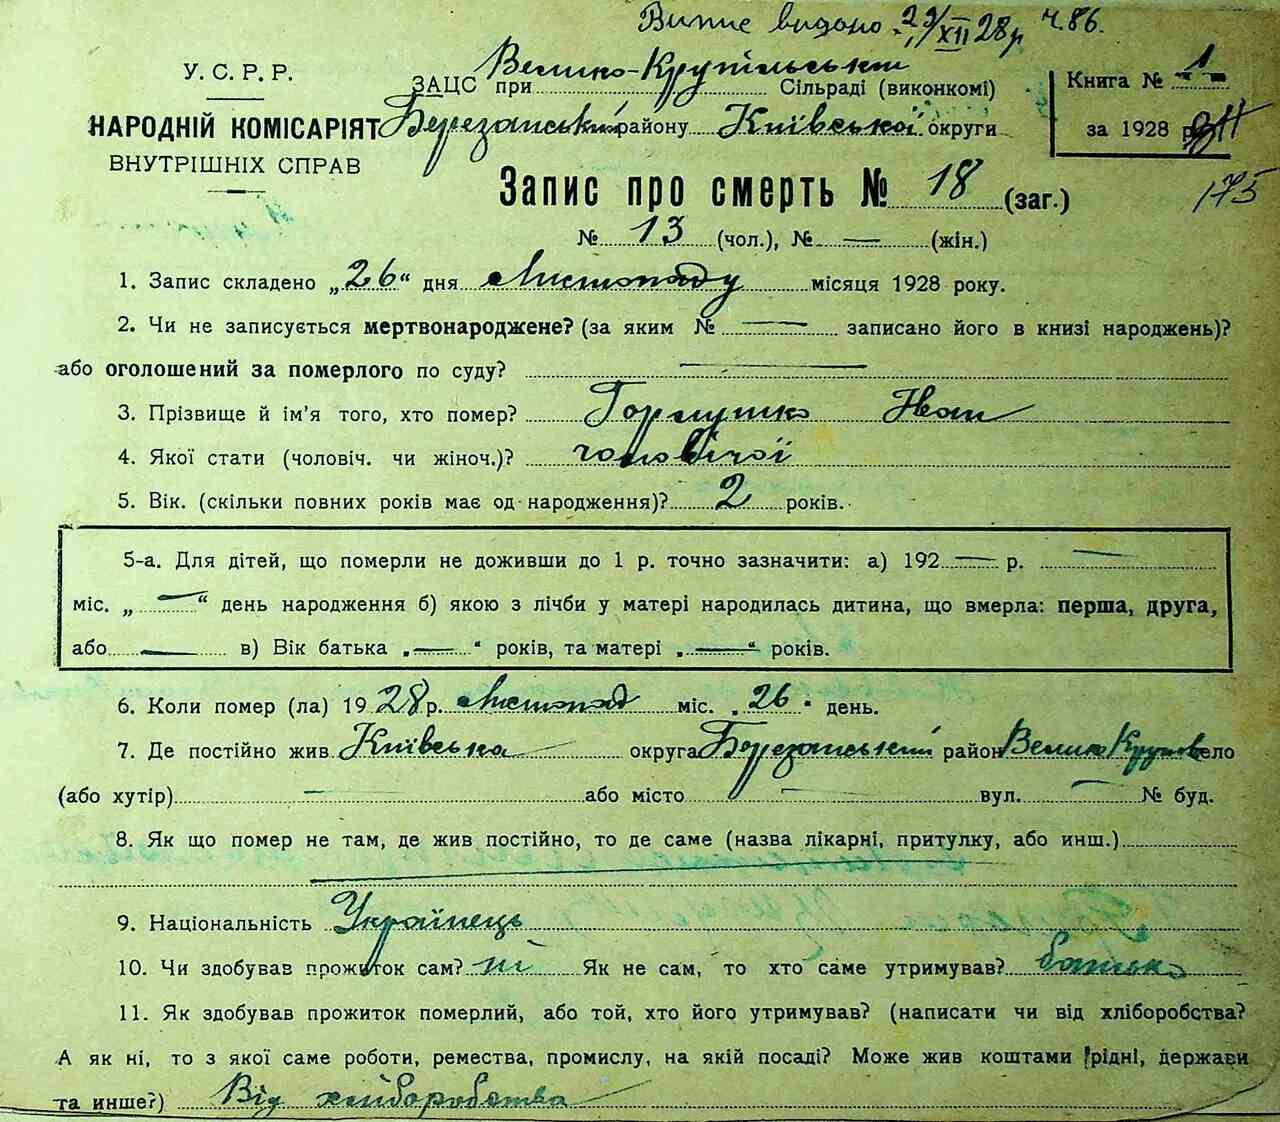 Випис видано 29/XII 28р ч. 86.
У. С. Р. Р.
НАРОДНІЙ КОМІСАРІЯТ
ВНУТРІШНІХ СПРАВ
ЗАЦС при Велико-Крупільській Сільраді (виконкомі)
Березанський району Київської округи
Книга № 1
за 1928 р.
175
Запис про смерть № 18 (заг.)
№ 13 (чол.), № — (жін.)
1. Запис складено „26“ дня Листопаду місяця 1928 року.
2. Чи не записується мертвонароджене? (за яким № — записано його в книзі народжень)?
або оголошений за померлого по суду? —
3. Прізвище й ім'я того, хто помер? Іван
4. Якої стати (чоловіч. чи жіноч.)? чоловічої
5. Вік. (скільки повних років має од народження)? 2 років.
5-а. Для дітей, що померли не доживши до 1 р. точно зазначити: а) 192 — р. —
міс. „ — “ день народження б) якою з лічби у матері народилась дитина, що вмерла: перша, друга,
або — в) Вік батька „ — “ років, та матері „ — “ років.
6. Коли помер (ла) 1928 р. Листопад міс. „26“ день.
7. Де постійно жив Київська округа Березанський район Велико Круполь село
(або хутір) — або місто — вул. — № буд.
8. Як що помер не там, де жив постійно, то де саме (назва лікарні, притулку, або инш.)
9. Національність Українець
10. Чи здобував прожиток сам? ні Як не сам, то хто саме утримував? батько
11. Як здобував прожиток померлий, або той, хто його утримував? (написати чи від хліборобства?
А як ні, то з якої саме роботи, ремества, промислу, на якій посаді? Може жив коштами рідні, держави
та инше?) Від хліборобства